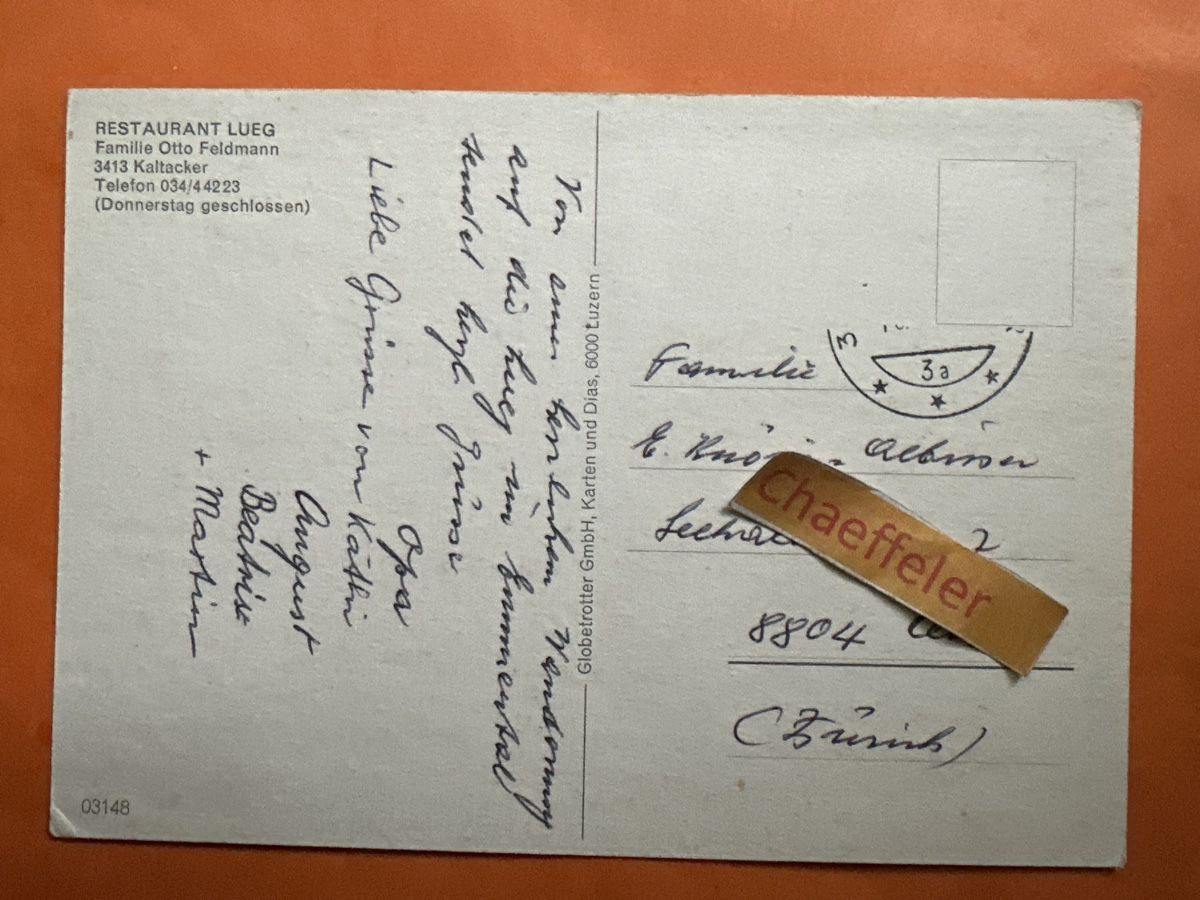 RESTAURANT LUEG
Familie Otto Feldmann
3413 Kaltacker
Telefon 034/44223
(Donnerstag geschlossen)
Von einer herrlichen Wanderung
auf die Lueg im Emmental
sendet herzl. Grüsse
Opa
Liebe Grüsse von Käthi
August
Beatrix
+ Martin
03148
Globetrotter GmbH, Karten und Dias, 6000 Luzern
3
3a
Familie
E. Albisser
2
8804
(Zürich)
Chaeffeler